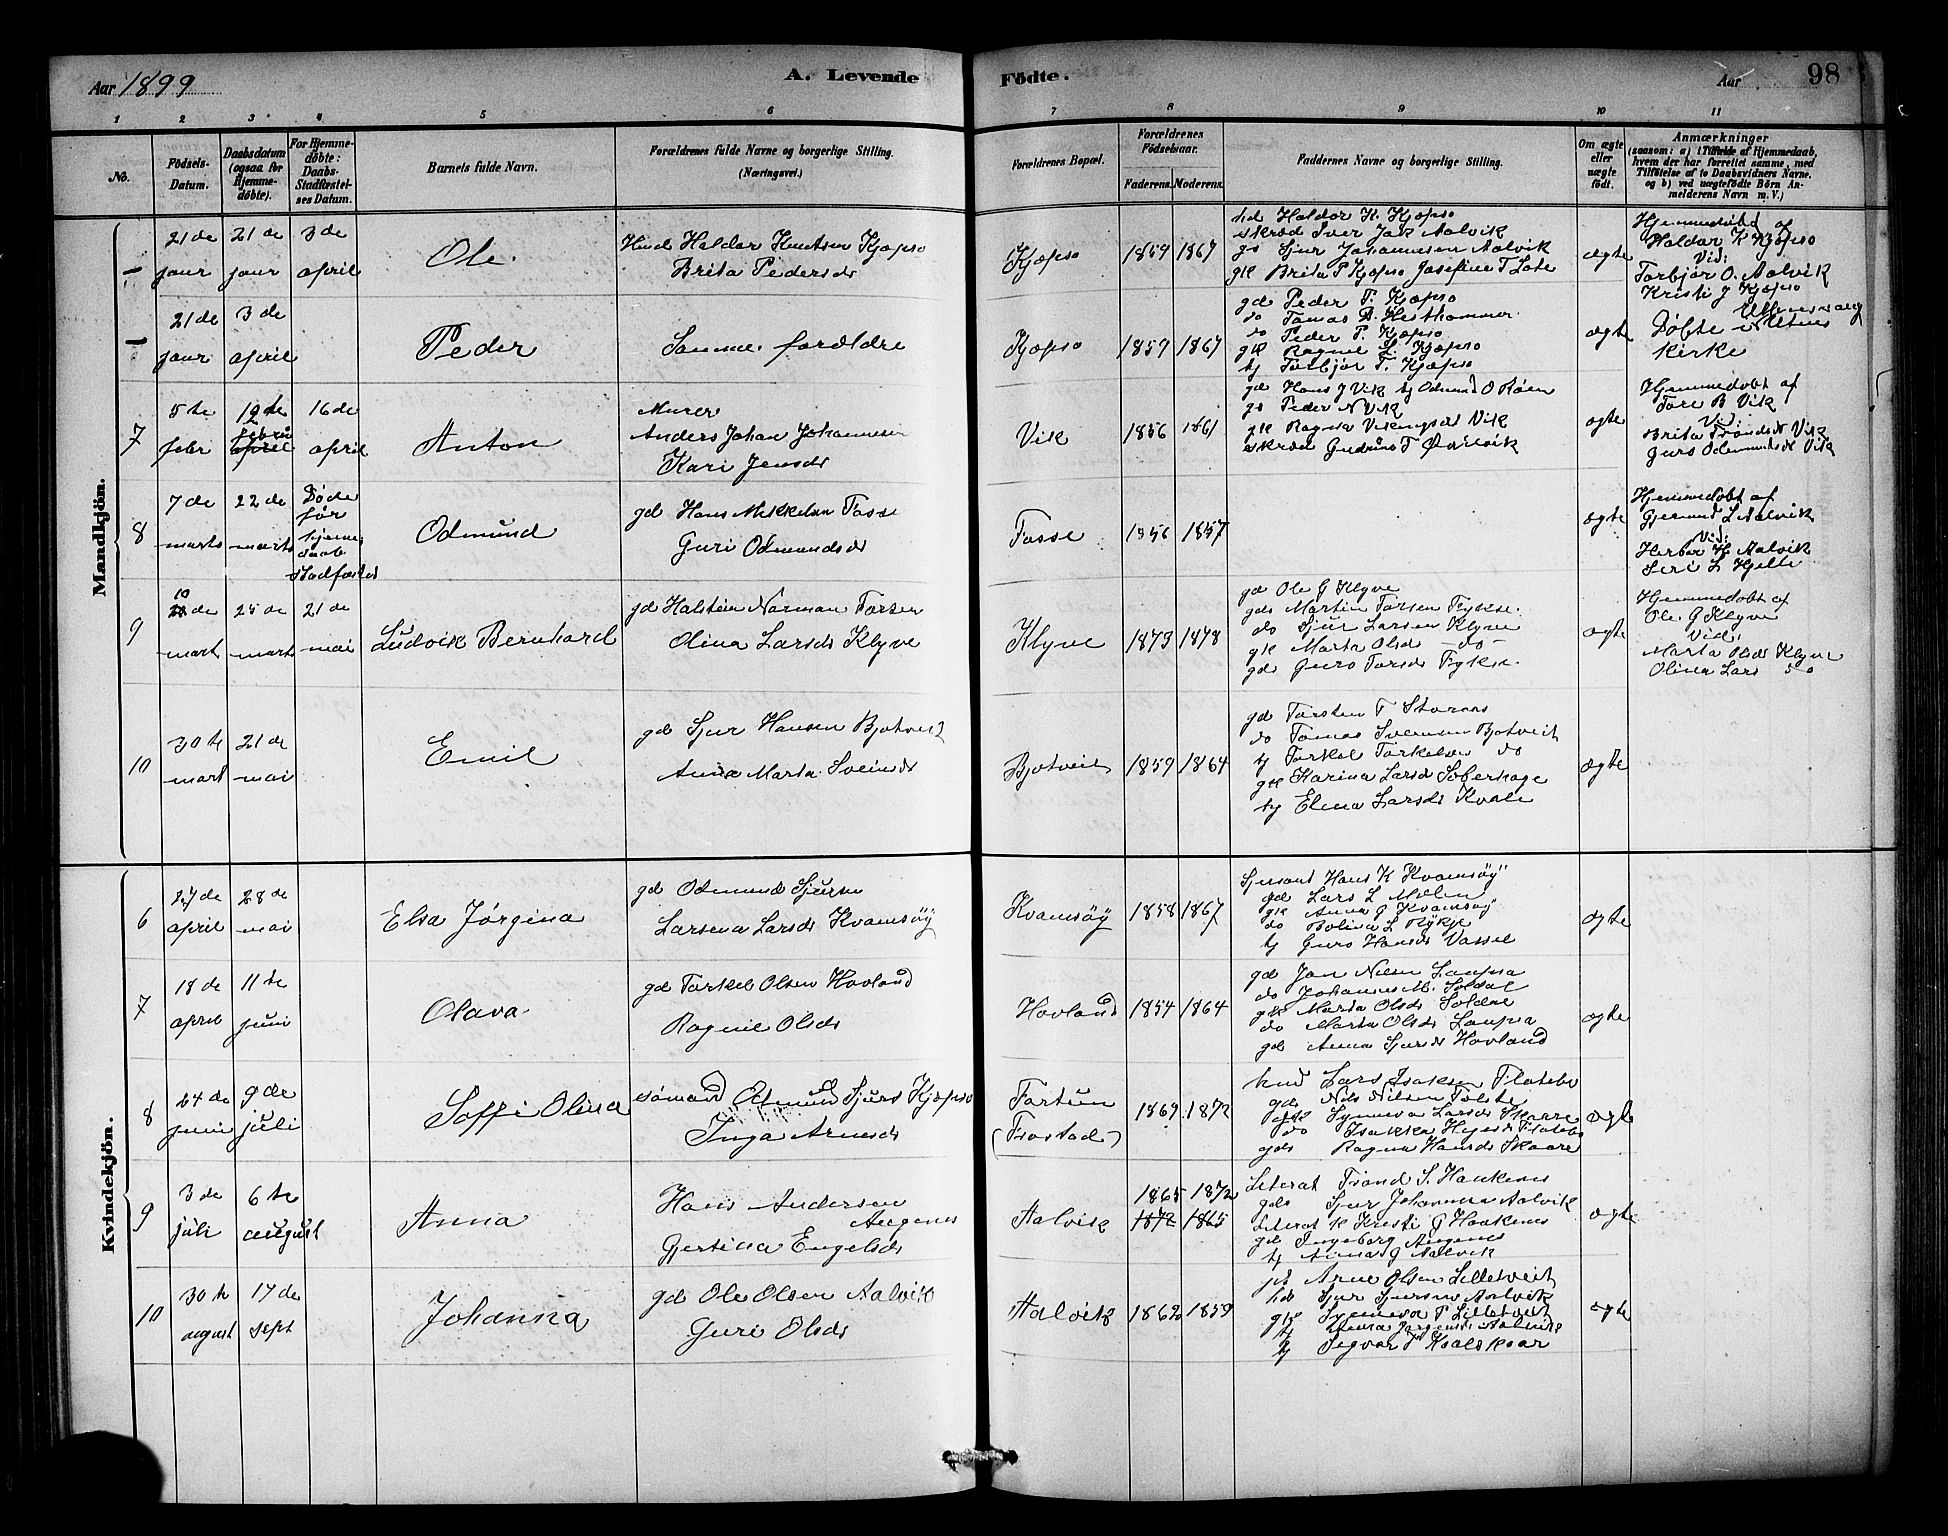 Aar 1899
A. Levende
Födte.
Aar
98
1 2 3 4 5 6 7 8 9 10 11
No.
Födsels-Datum.
Daabsdatum (ogsaa for Hjemmedöbte).
For Hjemmedöbte: Daabs-Stadfæstelses Datum.
Barnets fulde Navn.
Forældrenes fulde Navne og borgerlige Stilling.
(Næringsvei.)
Forældrenes Bopæl.
Forældrenes Födselsaar.
Faderens. Moderens.
Faddernes Navne og borgerlige Stilling.
Om ægte eller uægte födt.
Anmærkninger
(saasom: a) i Tilfælde af Hjemmedaab, hvem der har forrettet samme, med Tilföielse af to Daabsvidners Navne, og b) ved uægtefödte Börn Anmelderens Navn m. V.)
Mandkjön.
21 de januar
21 de januar
3 de april
Ole
Haldor Knutsen Kjæpso
Brita Pedersdr
Kjæpso
1859 1867
hd Haldor K. Kjæpso
skræd Iver Jak Aalvik
gs Sjur Johannesen Aalvik
gk Brita P Kjæpso Josefine T Lote
ægte
Hjemmedöbt af
Haldor K Kjæpso
Vid:
Torbjør O. Aalvik
Kristi J Kjæpso
21 de januar
3 de april
Peder
Samme forældre
Kjæpso
1859 1867
gd Peder T. Kjæpso
do Tomas D. Hesthammer
do Peder P. Kjæpso
gk Ragne L. Kjæpso
tj Torbjør T. Kjæpso
ægte
Döbte i Utnes
Kirke
7
5 te febr
12 te febru
16 de april
Anton
Murer
Anders Johan Johannesen
Kari Jensdr
Vik
1856 1861
gd Hans J Vik tj Odmund O Røen
gs Peder N Vik
gk Ragna Vikingsdr Vik
skræd Gudruns T
ægte
Hjemmedobt af
Tore B Vik
Vid:
Brita Tronds dr Vik
Guro Odmundsdr Vik
8
7 de marts
22 de marts
Døde før hjemmedaab stadfæstes
Odmund
gd Hans Mikkelsen Tosse
Guri Odmundsdr
Tosse
1856 1857
ægte
Hjemmedobt af
Gjermund L Aalvik
Vid:
Herbor H Aalvik
Siri L Hjelle
9
10 de mart
25 de mart
21 de mai
Ludvik Bernhard
gd Halstein Norman Torsen
Olina Larsdr Klyve
Klyve
1873 1878
gd Ole G Klyve
gds Martin Torsen Fykse
do Sjur Larsen Klyve
gk Marta Olsdr do
gds Guro Torsdr Fykse
ægte
Hjemmedobt af
Ole G Klyve
Vid:
Marta Olsdr Klyve
Olina Lars do
10
30 te mart
21 de mai
Emil
gd Sjur Hansen Bjotveit
Anna Marta Sveinsdr
Bjotveit
1859 1864
gd Torsten T Steraas
do Tomas Svensen Bjotveit
tj Torkel Torkelsen do
gk Karina Larsd Soberhage
tj Elena Larsdr Kvale
ægte
Kvindekjön.
6
27 de april
28 de mai
Elsa Jørgina
gd Odmund Sjursen
Larsena Larsdr Kvamsøy
Kvamsøy
1858 1867
Sjersant Hans K Kvamsøy
gd Lars L Molen
gk Anna G Kvamsøy
do Bolina L Rykje
tj Guro Hansdr Vassel
ægte
7
18 de april
11 te juni
Olava
gd Torkel Olsen Hovland
Ragne Olsdr
Hovland
1854 1864
gd Jon Nilsen Laupsa
do Johannes M. Soldal
gk Marta Olsdr Soldal
do Marta Olsdr Laupsa
gd Anna Sjursdr Hovland
ægte
8
24 de juni
9 de juli
Soffi Olina
sömand Odmund Sjurs Kjæpso
Inga Arnesdr
Tortun
(Frostad)
1869 1872
hmd Lars Isaksen Flatebø
gds Nils Nilsen Tolste
gk Synneva Larsdr Skarre
do Isakka Hegesdr Flatebø
gds Ragna Hansdr Skaare
ægte
9
3 de juli
6 te august
Anna
Hans Andersen
Augenes
Gjertina Engelsdr
Aalvik
1865 1872
1872 1865
Literat Trond S. Haukenes
gds Sjur Johannesen Aalvik
Literat k Kristi G Haukenes
gd Ingeborg Augenes
tj Anna G Aalvik
ægte
10
30 te august
17 de sept
Johanna
gd Ole Olsen Aalvik
Guri Olsdr
Aalvik
1862 1859
gd Arne Olsen Lilletveit
hd Sjur Sjursen Aalvik
gk Synneva P Lilletveit
tj Anna Jørgensdr Aalvik
tj Segvor P Kvalskaar
ægte